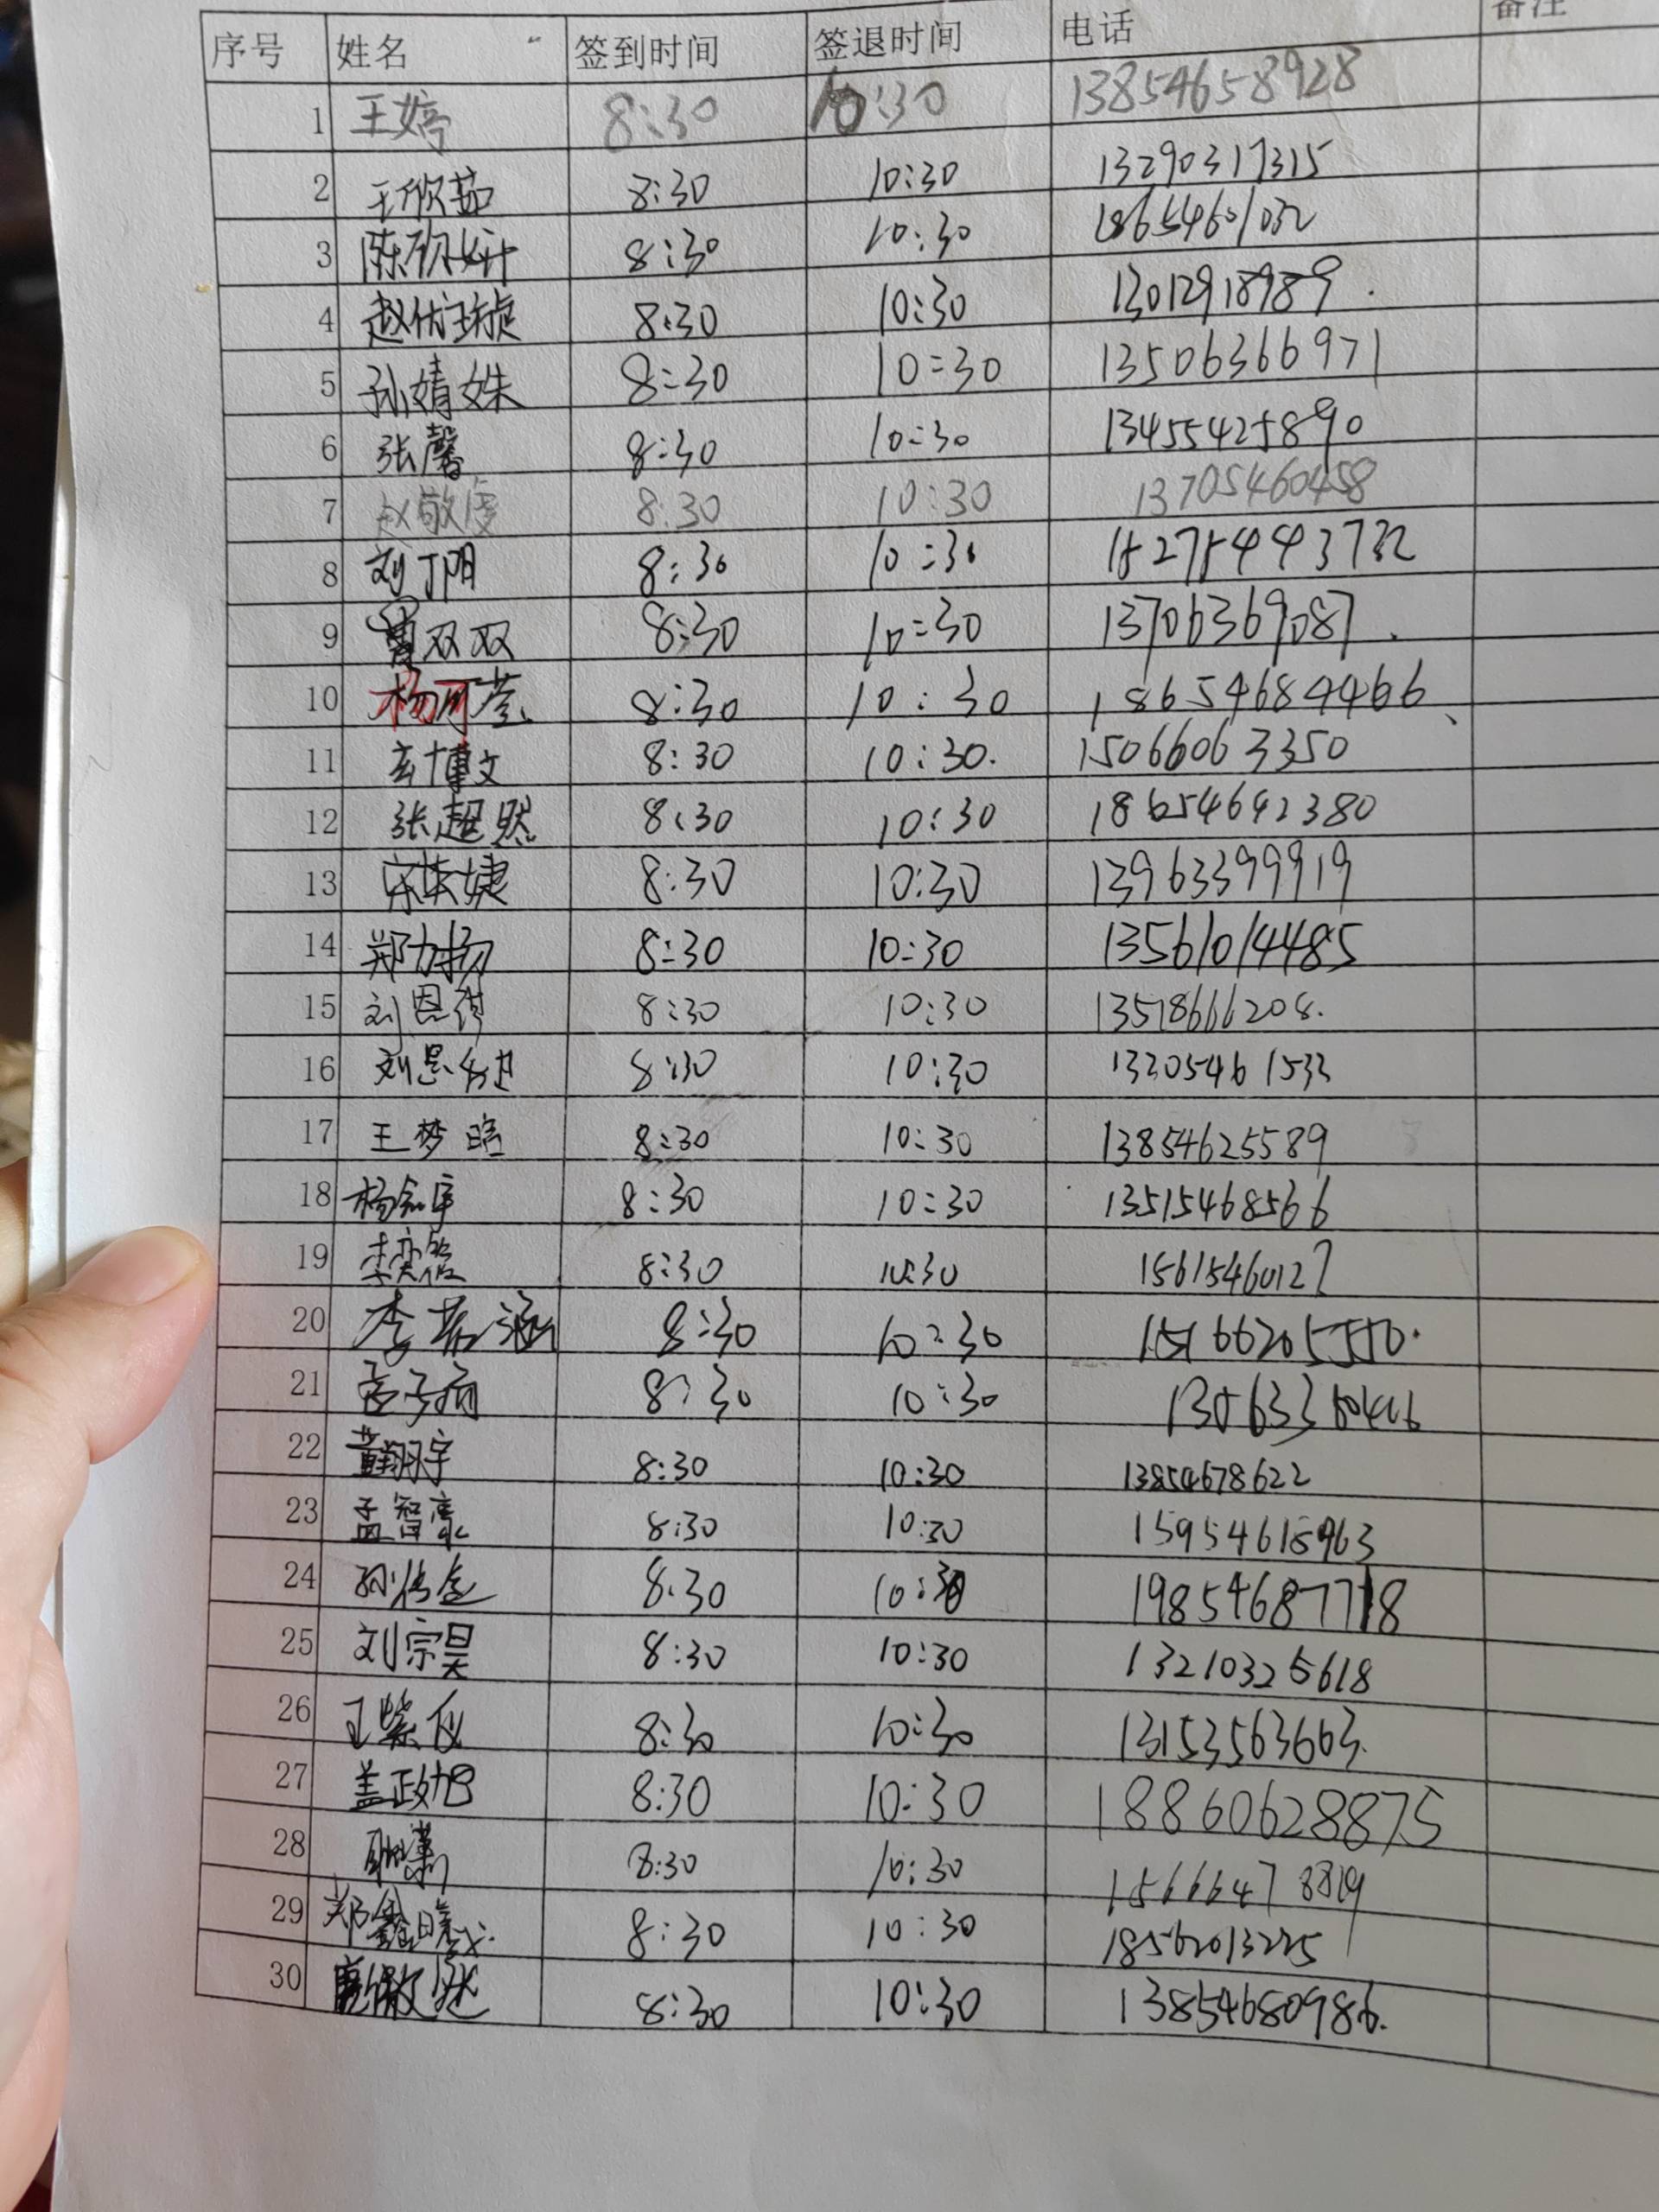 序号 姓名 签到时间 签退时间 电话 备注
1 王婷 8:30 10:30 13854658928
2 王欣茹 8:30 10:30 13290317315
3 8:30 10:30 18654601032
4 8:30 10:30 13012918989.
5 孙婧姝 8:30 10:30 13506366971
6 张馨 8:30 10:30 13455425890
7 赵敬虔 8:30 10:30 13705460458
8 8:30 10:30
9 曹双双 8:30 10:30 13706369087.
10 8:30 10:30 18654684466
11 玄博文 8:30 10:30. 15066063350
12 张超然 8:30 10:30 18654642380
13 8:30 10:30 13963399919
14 郑力扬 8:30 10:30 13561014485
15 刘恩祺 8:30 10:30
16 8:30 10:30
17 王梦晗 8:30 10:30 13854625589
18 8:30 10:30 13515468566
19 8:30 10:30 15615460127
20 李若涵 8:30 10:30
21 8:30 10:30
22 董翔宇 8:30 10:30 13854678622
23 孟智豪 8:30 10:30
24 8:30 10:30 19854687718
25 刘宗昊 8:30 10:30
26 王紫仪 8:30 10:30 13153563663.
27 盖政旭 8:30 10:30 18860628875
28 8:30 10:30
29 8:30 10:30 18562013225
30 8:30 10:30 13854680986.